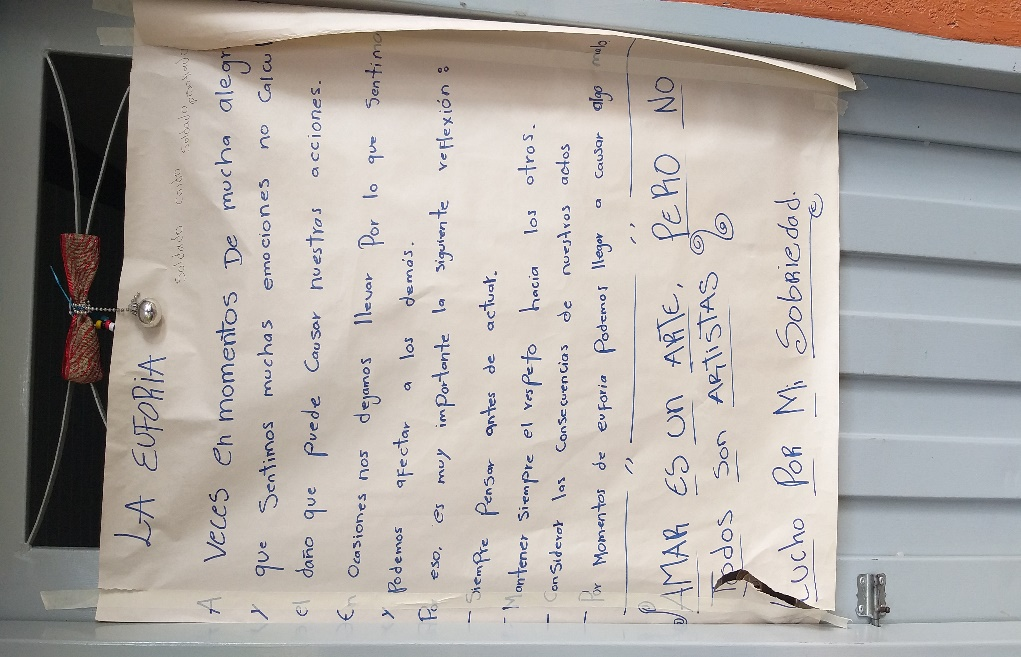 LA EUFORIA
A veces en momentos De mucha alegr
y que Sentimos muchas emociones no Calcu
el daño que Puede Causar nuestras acciones.
En Ocasiones nos dejamos llevar Por lo que Sentimo
y Podemos afectar a los demás.
Por eso, es muy importante la siguiente reflexión:
- Siempre Pensar antes de actuar.
- Mantener Siempre el respeto hacia los otros.
- Considerar las Consecuencias de nuestros actos
- Por Momentos de euforia Podemos llegar a causar algo malo
AMAR ES UN ARTE, PERO NO
TODOS SON ARTISTAS
LUCHO POR Mi SOBRIEDAD.